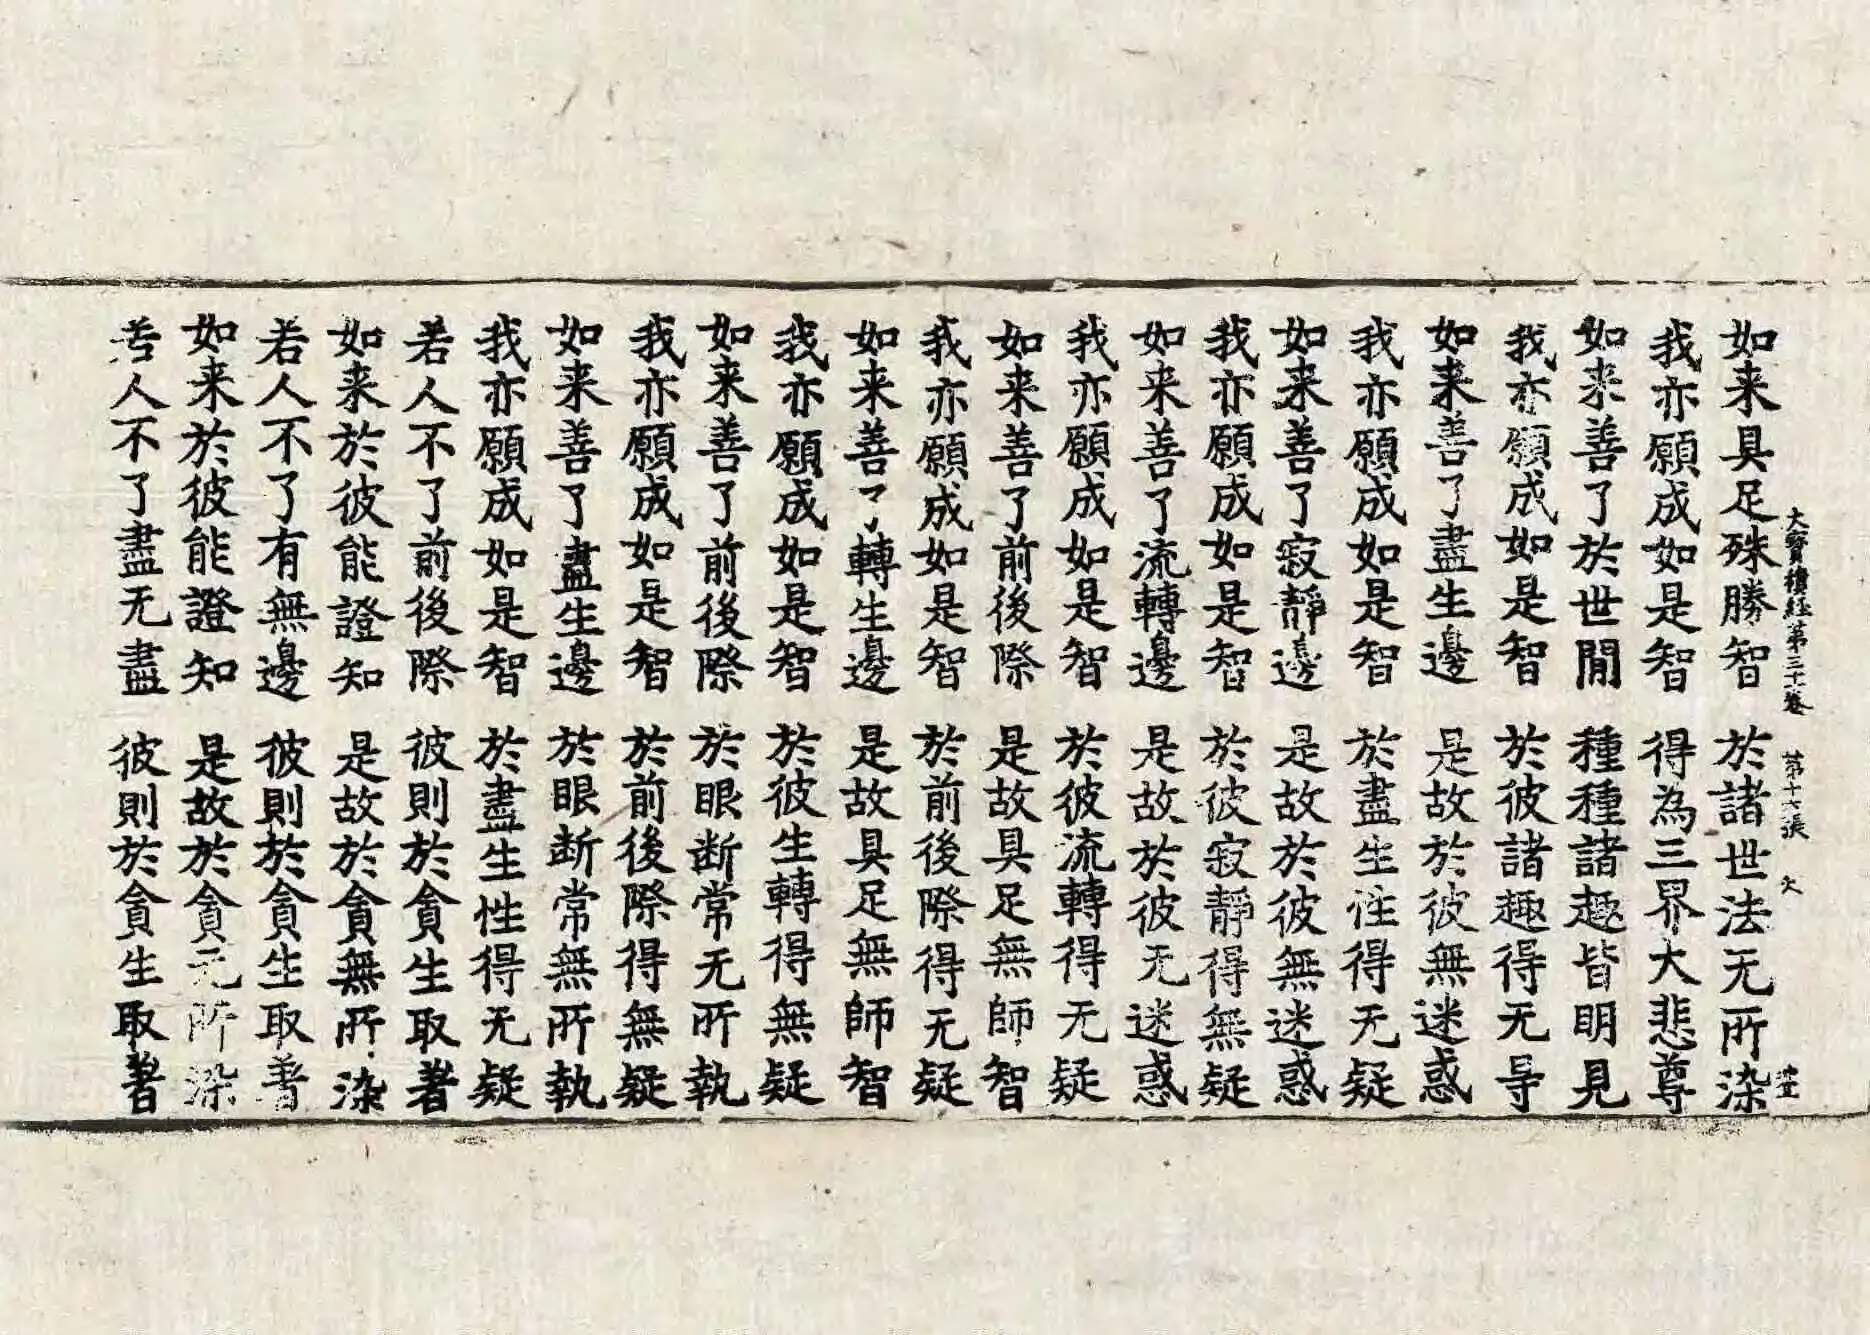 大寶積經第三十卷 第十六張 火
如来具足殊勝智 於諸世法无所染
我亦願成如是智 得為三界大悲尊
如来善了於世閒 種種諸趣皆明見
我亦願成如是智 於彼諸趣得无㝵
如来善了盡生邊 是故於彼無迷惑
我亦願成如是智 於盡生性得无疑
如来善了寂靜邊 是故於彼無迷惑
我亦願成如是智 於彼寂靜得無疑
如来善了流轉邊 是故於彼无迷惑
我亦願成如是智 於彼流轉得无疑
如来善了前後際 是故具足無師智
我亦願成如是智 於前後際得无疑
如来善了轉生邊 是故具足無師智
我亦願成如是智 於彼生轉得無疑
如来善了前後際 於眼断常无所執
我亦願成如是智 於前後際得無疑
如来善了盡生邊 於眼断常無所執
我亦願成如是智 於盡生性得无疑
若人不了前後際 彼則於貪生取著
如来於彼能證知 是故於貪無所染
若人不了有無邊 彼則於貪生取著
如来於彼能證知 是故於貪无所染
若人不了盡无盡 彼則於貪生取著